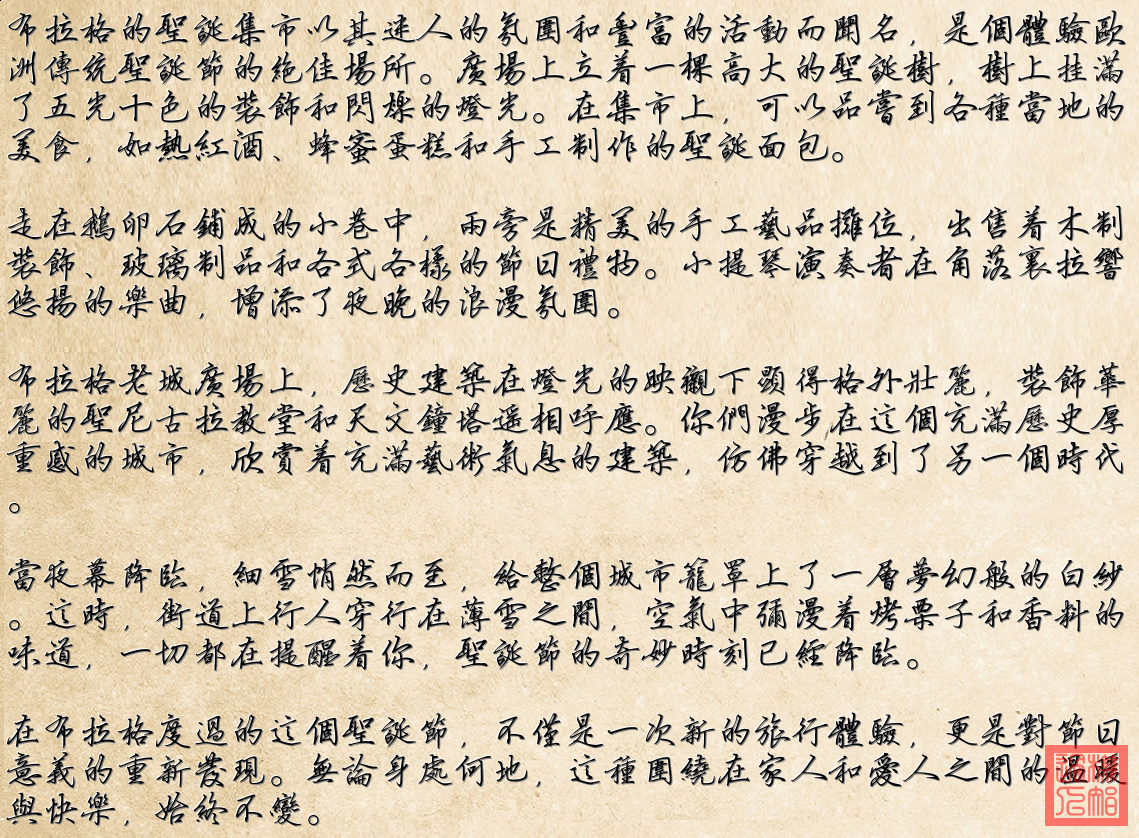 布拉格的聖誕集市以其迷人的氛圍和豐富的活動而聞名，是個體驗歐
洲傳統聖誕節的絶佳場所。廣場上立着一棵高大的聖誕樹，樹上挂滿
了五光十色的裝飾和閃爍的燈光。在集市上，可以品嘗到各種當地的
美食，如熱紅酒、蜂蜜蛋糕和手工制作的聖誕面包。
走在鵝卵石鋪成的小巷中，兩旁是精美的手工藝品攤位，出售着木制
裝飾、玻璃制品和各式各樣的節日禮物。小提琴演奏者在角落裏拉響
悠揚的樂曲，增添了夜晚的浪漫氛圍。
布拉格老城廣場上，歷史建築在燈光的映襯下顯得格外壯麗，裝飾華
麗的聖尼古拉教堂和天文鐘塔遥相呼應。你們漫步在這個充滿歷史厚
重感的城市，欣賞着充滿藝術氣息的建築，仿佛穿越到了另一個時代
。
當夜幕降臨，細雪悄然而至，給整個城市籠罩上了一層夢幻般的白紗
。這時，街道上行人穿行在薄雪之間，空氣中彌漫着烤栗子和香料的
味道，一切都在提醒着你，聖誕節的奇妙時刻已經降臨。
在布拉格度過的這個聖誕節，不僅是一次新的旅行體驗，更是對節日
意義的重新發現。無論身處何地，這種圍繞在家人和愛人之間的温暖
與快樂，始終不變。